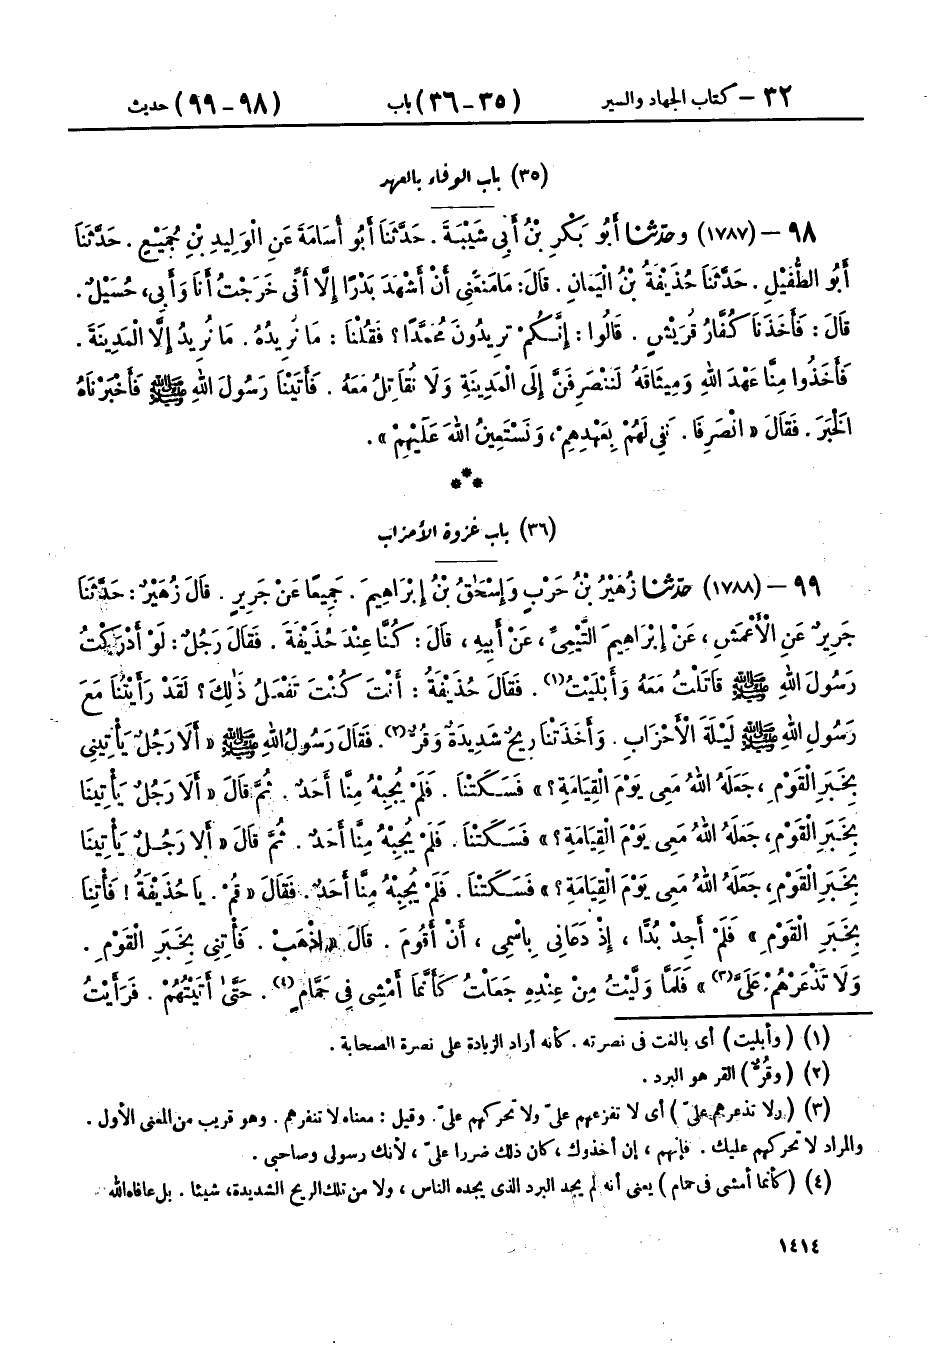 ٣٢ – كتاب الجهاد والسير (٣٥ – ٣٦) باب (٩٨ – ٩٩) حديث
(٣٥) باب الوفاء بالعهد
٩٨ – (١٧٨٧) وحَدَّثَنَا أَبُو بَكْرِ بْنُ أَبِي شَيْبَةَ . حَدَّثَنَا أَبُو أُسَامَةَ عَنِ الْوَلِيدِ بْنِ جُمَيْعٍ . حَدَّثَنَا
أَبُو الطُّفَيْلِ . حَدَّثَنَا حُذَيْفَةُ بْنُ الْيَمَانِ . قَالَ: مَا مَنَعَنِي أَنْ أَشْهَدَ بَدْرًا إِلَّا أَنِّي خَرَجْتُ أَنَا وَأَبِي، حُسَيْلٌ .
قَالَ : فَأَخَذَنَا كُفَّارُ قُرَيْشٍ . قَالُوا : إِنَّكُمْ تُرِيدُونَ مُحَمَّدًا ؟ فَقُلْنَا : مَا نُرِيدُهُ . مَا نُرِيدُ إِلَّا الْمَدِينَةَ .
فَأَخَذُوا مِنَّا عَهْدَ اللهِ وَمِيثَاقَهُ لَنَنْصَرِفَنَّ إِلَى الْمَدِينَةِ وَلَا نُقَاتِلُ مَعَهُ . فَأَتَيْنَا رَسُولَ اللهِ ﷺ فَأَخْبَرْنَاهُ
الْخَبَرَ . فَقَالَ « انْصَرِفَا . نَفِي لَهُمْ بِعَهْدِهِمْ، وَنَسْتَعِينُ اللهَ عَلَيْهِمْ » .
***
(٣٦) باب غزوة الأحزاب
٩٩ – (١٧٨٨) حَدَّثَنَا زُهَيْرُ بْنُ حَرْبٍ وَإِسْحَاقُ بْنُ إِبْرَاهِيمَ . جَمِيعًا عَنْ جَرِيرٍ . قَالَ زُهَيْرٌ : حَدَّثَنَا
جَرِيرٌ عَنِ الْأَعْمَشِ ، عَنْ إِبْرَاهِيمَ التَّيْمِيِّ ، عَنْ أَبِيهِ ، قَالَ : كُنَّا عِنْدَ حُذَيْفَةَ . فَقَالَ رَجُلٌ : لَوْ أَدْرَكْتُ
رَسُولَ اللهِ ﷺ قَاتَلْتُ مَعَهُ وَأَبْلَيْتُ(١) . فَقَالَ حُذَيْفَةُ : أَنْتَ كُنْتَ تَفْعَلُ ذَٰلِكَ ؟ لَقَدْ رَأَيْتُنَا مَعَ
رَسُولِ اللهِ ﷺ لَيْلَةَ الْأَحْزَابِ . وَأَخَذَتْنَا رِيحٌ شَدِيدَةٌ وَقُرٌّ(٢). فَقَالَ رَسُولُ اللهِ ﷺ « أَلَا رَجُلٌ يَأْتِينِي
بِخَبَرِ الْقَوْمِ ، جَعَلَهُ اللهُ مَعِي يَوْمَ الْقِيَامَةِ ؟ » فَسَكَتْنَا . فَلَمْ يُجِبْهُ مِنَّا أَحَدٌ . ثُمَّ قَالَ « أَلَا رَجُلٌ يَأْتِينَا
بِخَبَرِ الْقَوْمِ ، جَعَلَهُ اللهُ مَعِي يَوْمَ الْقِيَامَةِ ؟ » فَسَكَتْنَا . فَلَمْ يُجِبْهُ مِنَّا أَحَدٌ . ثُمَّ قَالَ « أَلَا رَجُلٌ يَأْتِينَا
بِخَبَرِ الْقَوْمِ ، جَعَلَهُ اللهُ مَعِي يَوْمَ الْقِيَامَةِ ؟ » فَسَكَتْنَا . فَلَمْ يُجِبْهُ مِنَّا أَحَدٌ . فَقَالَ « قُمْ . يَا حُذَيْفَةُ ! فَأْتِنَا
بِخَبَرِ الْقَوْمِ » فَلَمْ أَجِدْ بُدًّا ، إِذْ دَعَانِي بِاسْمِي ، أَنْ أَقُومَ . قَالَ « اذْهَبْ . فَأْتِنِي بِخَبَرِ الْقَوْمِ .
وَلَا تَذْعَرْهُمْ عَلَيَّ(٣) » فَلَمَّا وَلَّيْتُ مِنْ عِنْدِهِ جَعَلْتُ كَأَنَّمَا أَمْشِي فِي حَمَّامٍ(٤) . حَتَّىٰ أَتَيْتُهُمْ . فَرَأَيْتُ
(١) (وأبليت) أى بالغت فى نصرته . كأنه أراد الزيادة على نصرة الصحابة .
(٢) (وقُرٌّ) القر هو البرد .
(٣) (ولا تذعرهم علىّ) أى لا تفزعهم علىّ ولا تحركهم علىّ . وقيل : معناه لا تنفرهم . وهو قريب من المعنى الأول .
والمراد لا تحركهم عليك . فإنهم ، إن أخذوك ، كان ذلك ضررا علىّ ، لأنك رسولى وصاحبى .
(٤) (كأنما أمشى فى حمام) يعنى أنه لم يجد البرد الذى يجده الناس ، ولا من تلك الريح الشديدة، شيئا . بل عافاه الله
١٤١٤